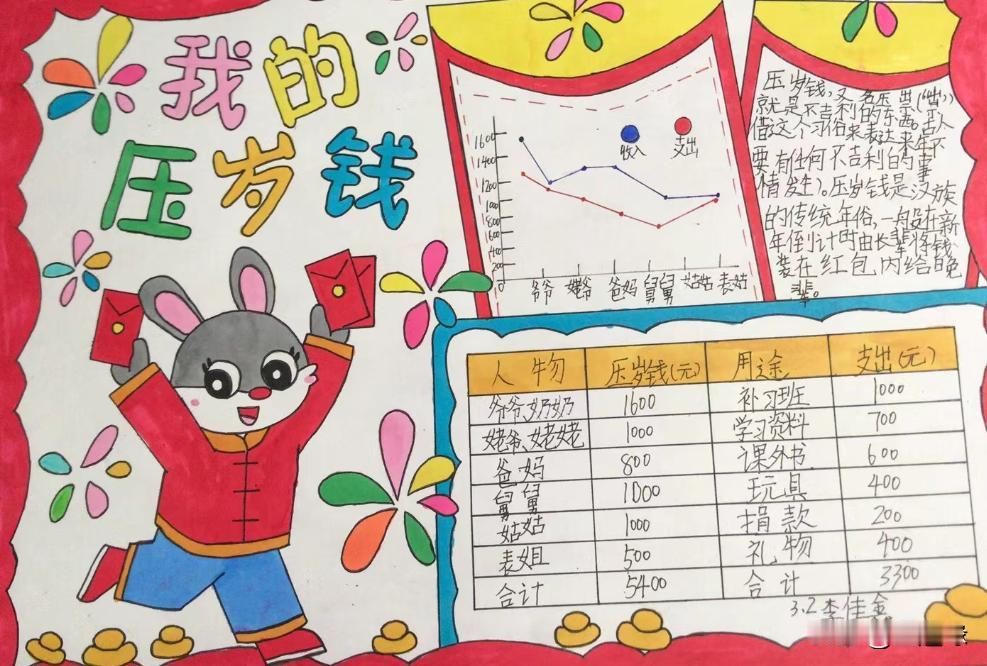 我的
压岁钱
1600
1400
1200
1000
800
600
400
200
收入
支出
爷爷
姥爷
爸妈
舅舅
姑姑
表姑
压岁钱,又名压祟(“出”)
就是不吉利的东西。古人
借这个习俗来表达来年不
要有任何不吉利的事
情发生)。压岁钱是汉族
的传统年俗,一般在新
年倒计时由长辈将钱
装在红包内给晚
辈。
人物 压岁钱(元) 用途 支出(元)
爷爷、奶奶 1600 补习班 1000
姥爷、姥姥 1000 学习资料 700
爸妈 800 课外书 600
舅舅 1000 玩具 400
姑姑 1000 捐款 200
表姐 500 礼物 400
合计 5400 合计 3300
3.2 李佳